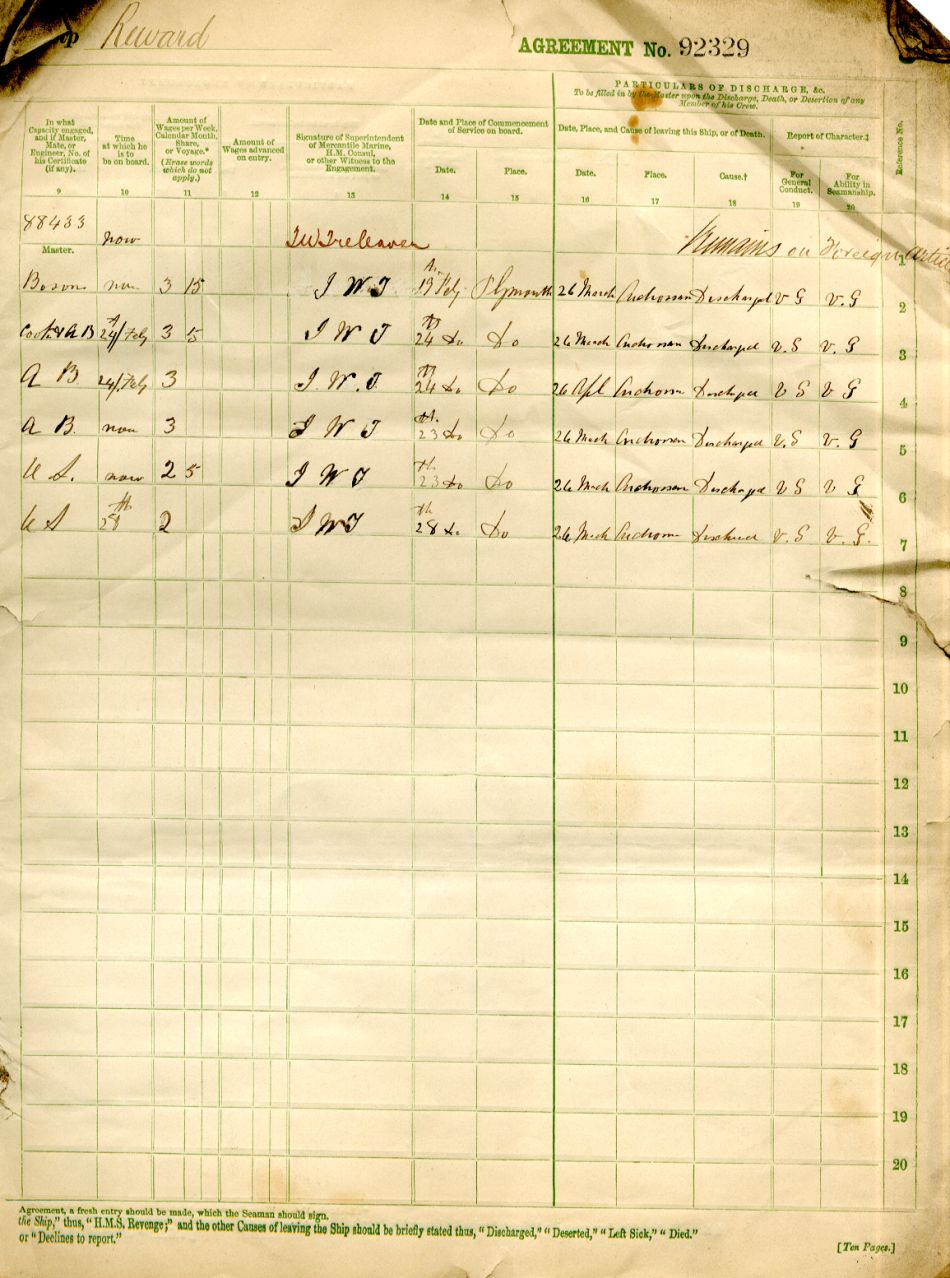 Reward
AGREEMENT No. 92329
PARTICULARS OF DISCHARGE, &c.
To be filled in by the Master upon the Discharge, Death, or Desertion of any
Member of his Crew.
In what
Capacity engaged,
and if Master,
Mate, or
Engineer, No. of
his Certificate
(if any).
9
Time
at which he
is to
be on board.
10
Amount of
Wages per Week,
Calendar Month,
Share,
or Voyage.*
(Erase words
which do not
apply.)
11
Amount of
Wages advanced
on entry.
12
Signature of Superintendent
of Mercantile Marine,
H.M. Consul,
or other Witness to the
Engagement.
13
Date and Place of Commencement
of Service on board.
Date.
14
Place.
15
Date, Place, and Cause of leaving this Ship, or of Death.
Date.
16
Place.
17
Cause.†
18
Report of Character.‡
For
General
Conduct.
19
For
Ability in
Seamanship.
20
Reference No.
88433 now Remains on Foreign
Master. 1
Bosun now 3 15 I W T 13 Feby Plymouth 26 March Ardrossan Discharged V G V. G 2
Cook & A B 24/Feby 3 5 I W T 24 Do Do 26 March Ardrossan Discharged V. G V. G 3
A B 24/Feby 3 I. W. T. 24 Do Do 26 Apl Ardrossan Discharged V G V G 4
A B. now 3 I W T 23 Do Do 26 March Ardrossan Discharged V. G V. G 5
now 2 5 I W T 23 Do Do 26 March Ardrossan Discharged V G V G 6
28th 2 I W T 28 Do Do 26 March Ardrossan Discharged V. G V. G. 7
8
9
10
11
12
13
14
15
16
17
18
19
20
Agreement, a fresh entry should be made, which the Seaman should sign.
the Ship," thus, "H.M.S. Revenge;" and the other Causes of leaving the Ship should be briefly stated thus, "Discharged," "Deserted," "Left Sick," "Died."
or "Declines to report."
[Ten Pages.]